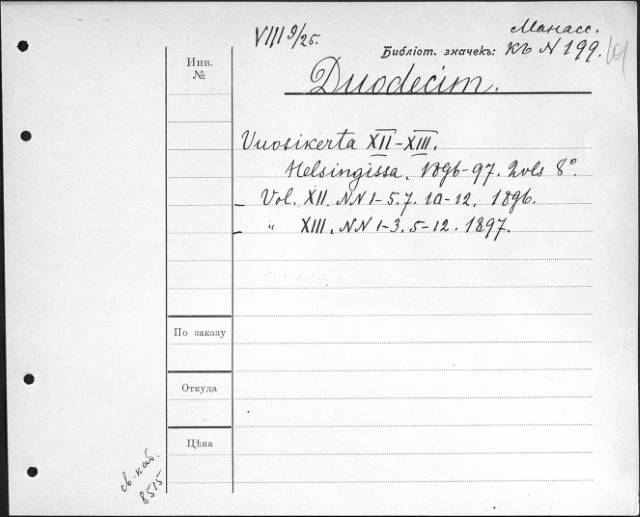 Манасс.
VIII 9/25.
Библіот. значекъ: къ N 199.
Инв.
№
Duodecim.
Vuosikerta XII-XIII.
Helsingissa. 1896-97. 2 vols 8°
– Vol. XII. NN 1-5. 7. 10-12. 1896.
– " XIII. NN 1-3. 5-12. 1897.
По заказу
Откуда
Цѣна
св. каб.
8515